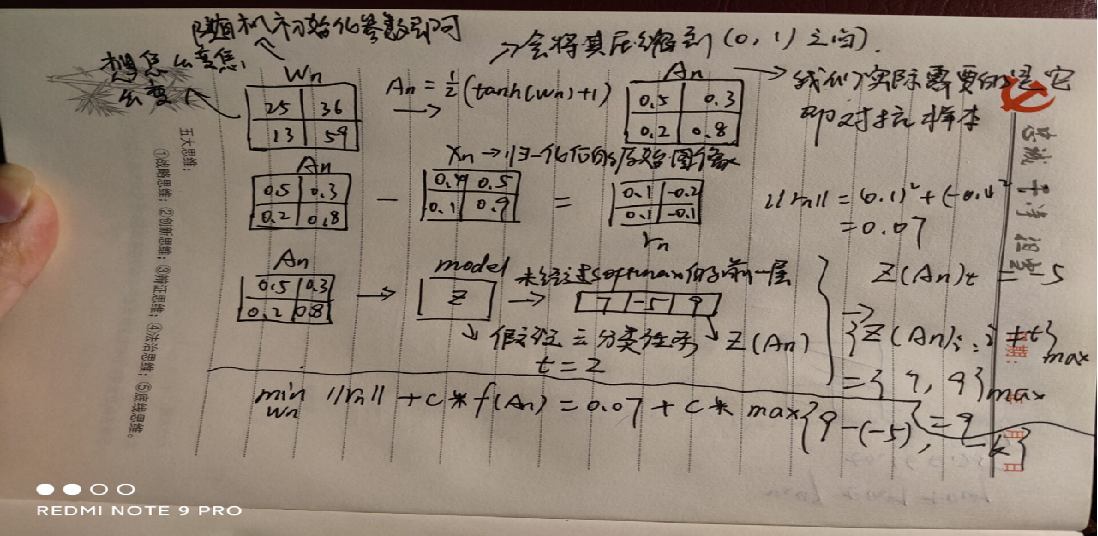 随机初始化参数即可
→会将其压缩到(0,1)之间).
想怎么变焦,
么变
Wn
25 36
13 59
An = 1/2 (tanh(Wn)+1)
An
0.5 0.3
0.2 0.8
我们实际需要的是它
即对抗样本
Xn → 归一化后的原始图像
An
0.5 0.3
0.2 0.8
−
0.4 0.5
0.1 0.9
=
0.1 -0.2
0.1 -0.1
rn
||rn|| = (0.1)² + (-0.1)²
= 0.07
An
0.5 0.3
0.2 0.8
→
model
Z
→
未经过softmax的前一层
7 -5 9
Z(An)
假设三分类任务
t = 2
Z(An)t = -5
{Z(An)i, i ≠ t}max
= {7, 9}max
= 9
min ||rn|| + C * f(An) = 0.07 + C * max{9-(-5), -k}
Wn
五大思维:
①战略思维;②创新思维;③辩证思维;④法治思维;⑤底线思维。
忠诚 干净 担当
月
日
REDMI NOTE 9 PRO